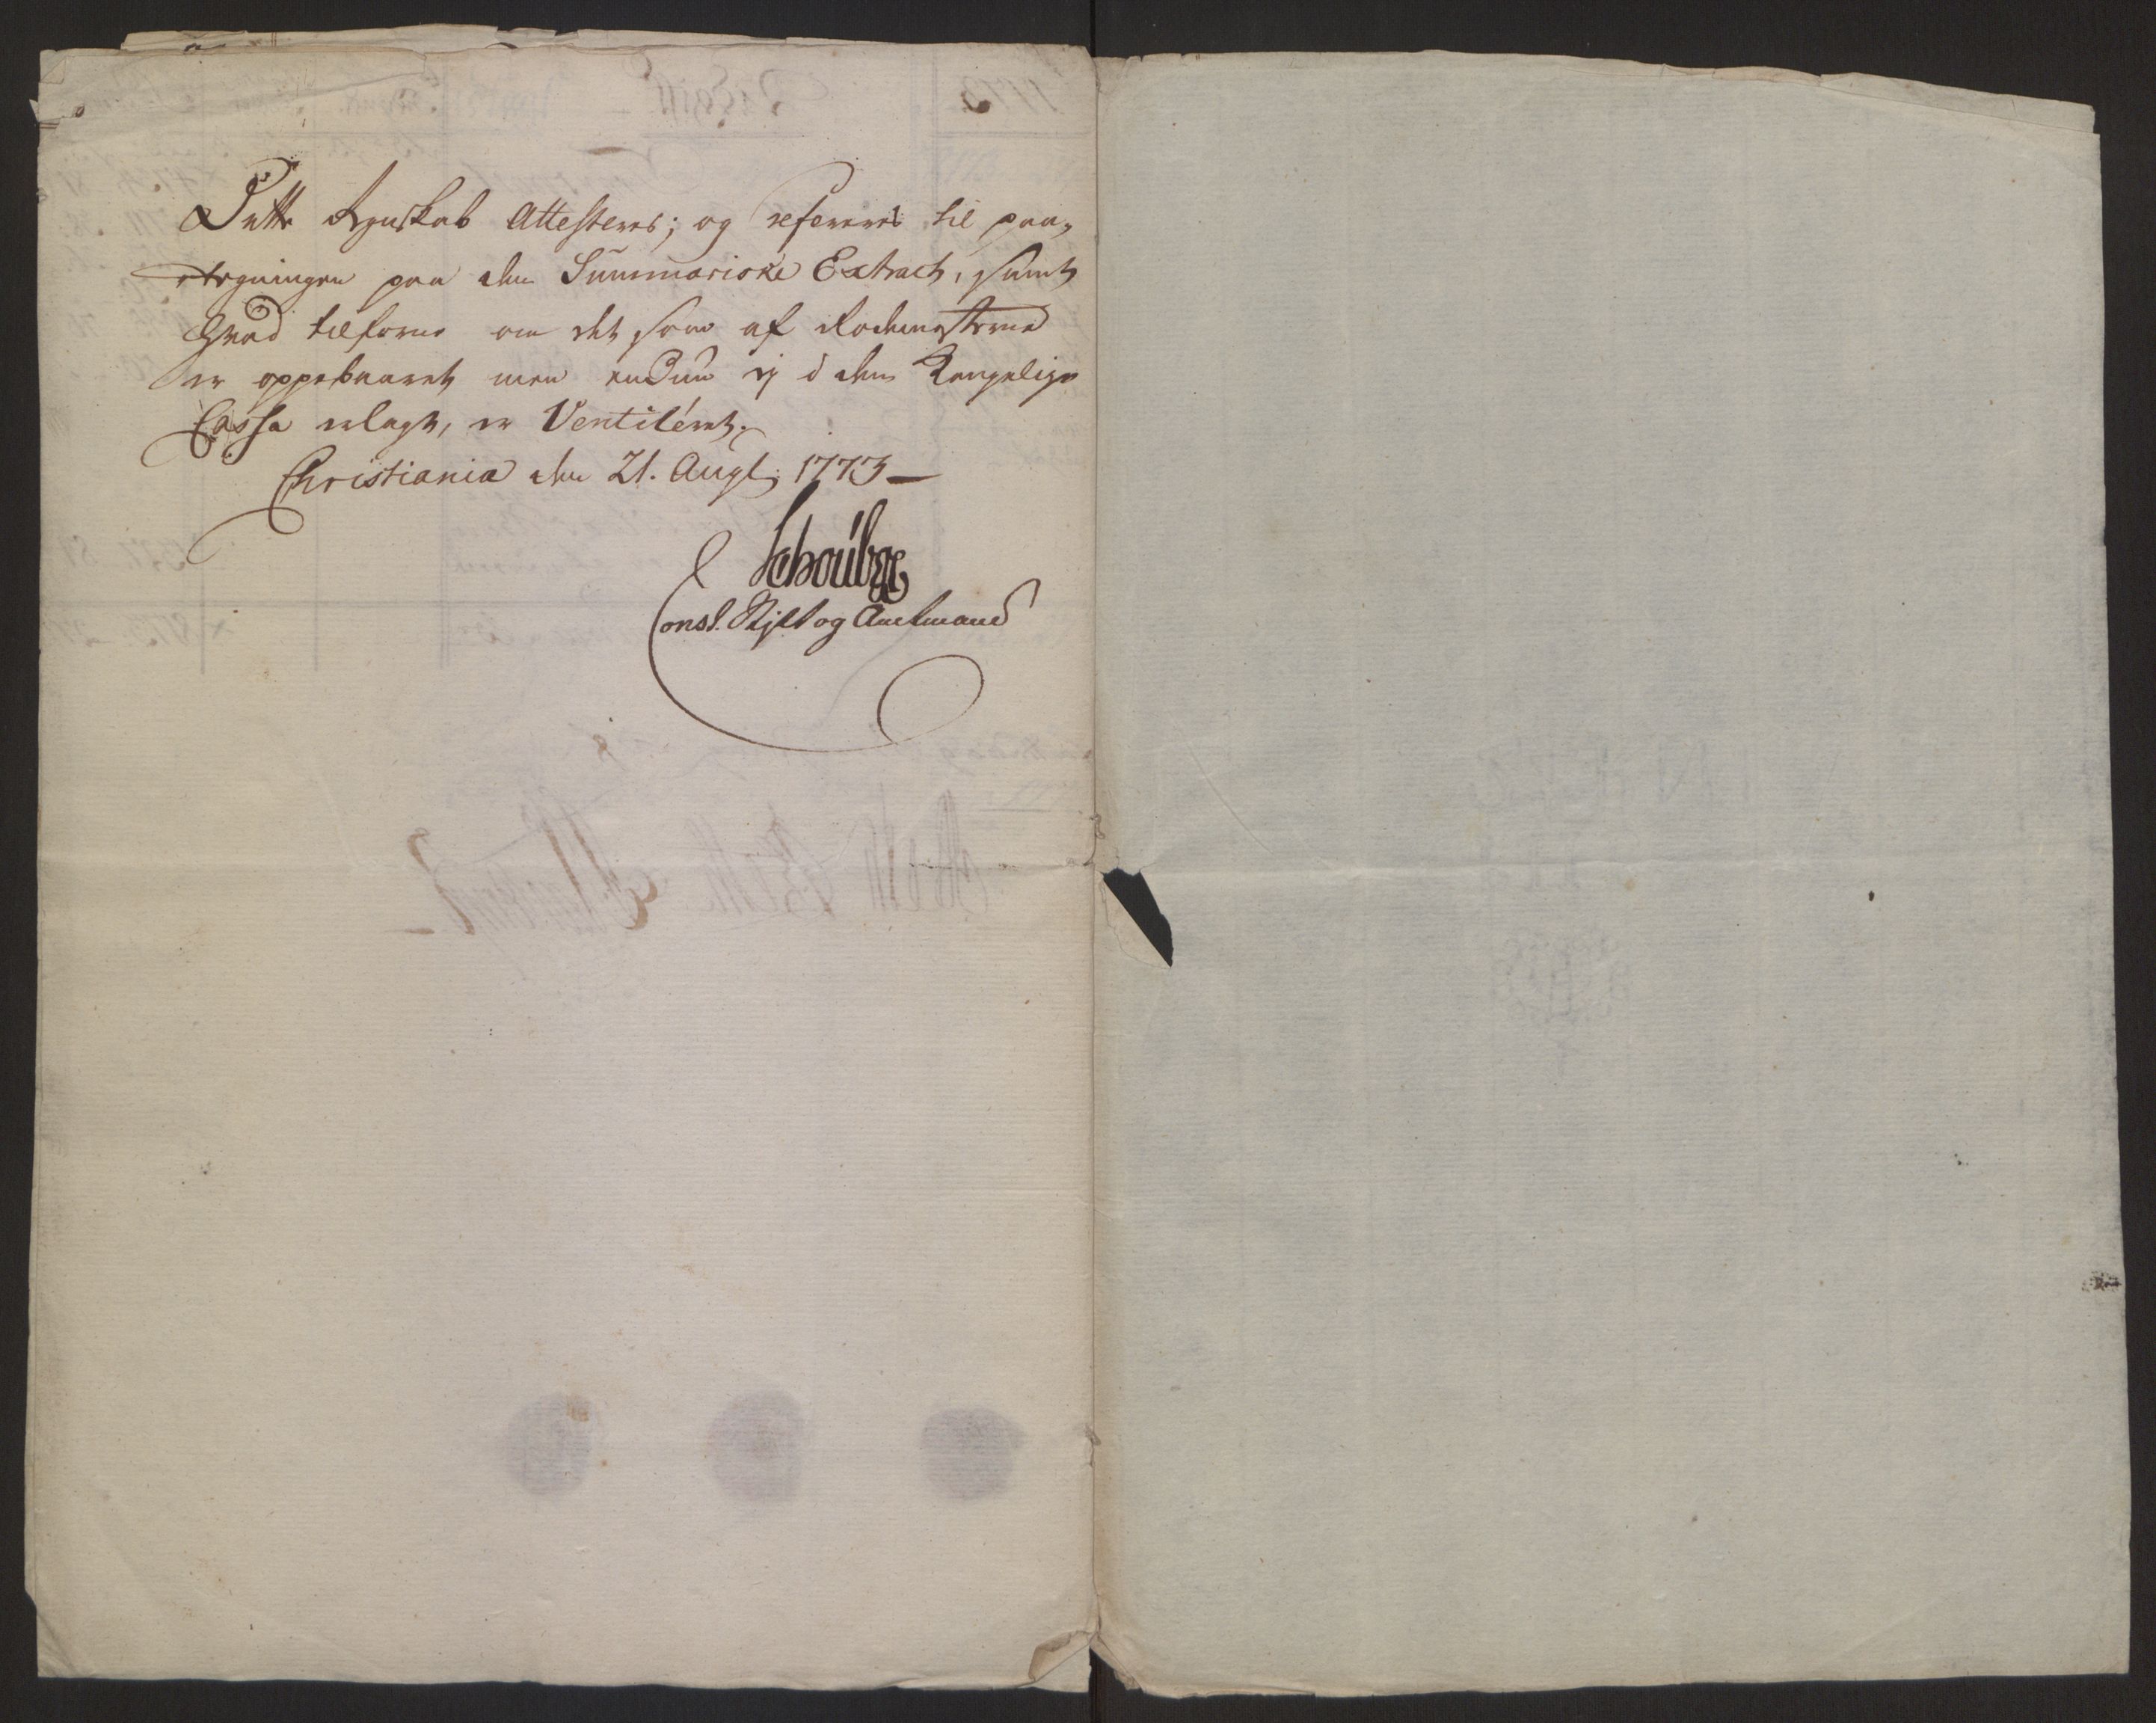 Dette Regnskab Attesteres; og refereres til paa-
tegningen paa den Summariske Extract, samt
hvad tilforne om det som af Rodemesterne
er oppebaaret men endnu ej i den Kongelige
Cassa erlagt, er Ventileret.
Christiania den 21. Augt: 1773
Schoubye
Const. Stift og Amtmand